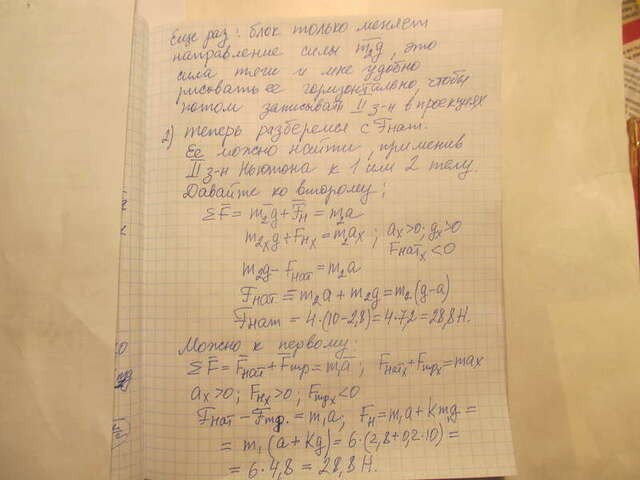 Еще раз: блок только меняет
направление силы m₂g, это
сила тяги и мне удобно
рисовать ее горизонтально, чтобы
потом записывать II з-н в проекциях
2) теперь разберемся с Fнат.
Ее можно найти, применив
II з-н Ньютона к 1 или 2 телу.
Давайте ко второму:
ΣF̄ = m₂ḡ + F̄н = m₂ā
m₂ₓg + Fнₓ = m₂aₓ ; aₓ>0; gₓ>0
Fнатₓ<0
m₂g - Fнат = m₂a
Fнат = m₂a + m₂g = m₂(g-a)
Fнат = 4·(10-2,8) = 4·7,2 = 28,8 Н.
Можно к первому:
ΣF̄ = F̄нат + F̄тр = m₁ā ; Fнатₓ + Fтрₓ = max
aₓ>0; Fнₓ>0; Fтрₓ<0
Fнат - Fтр. = m₁a; Fн = m₁a + km₁g =
= m₁(a + kg) = 6·(2,8 + 0,2·10) =
= 6·4,8 = 28,8 Н.